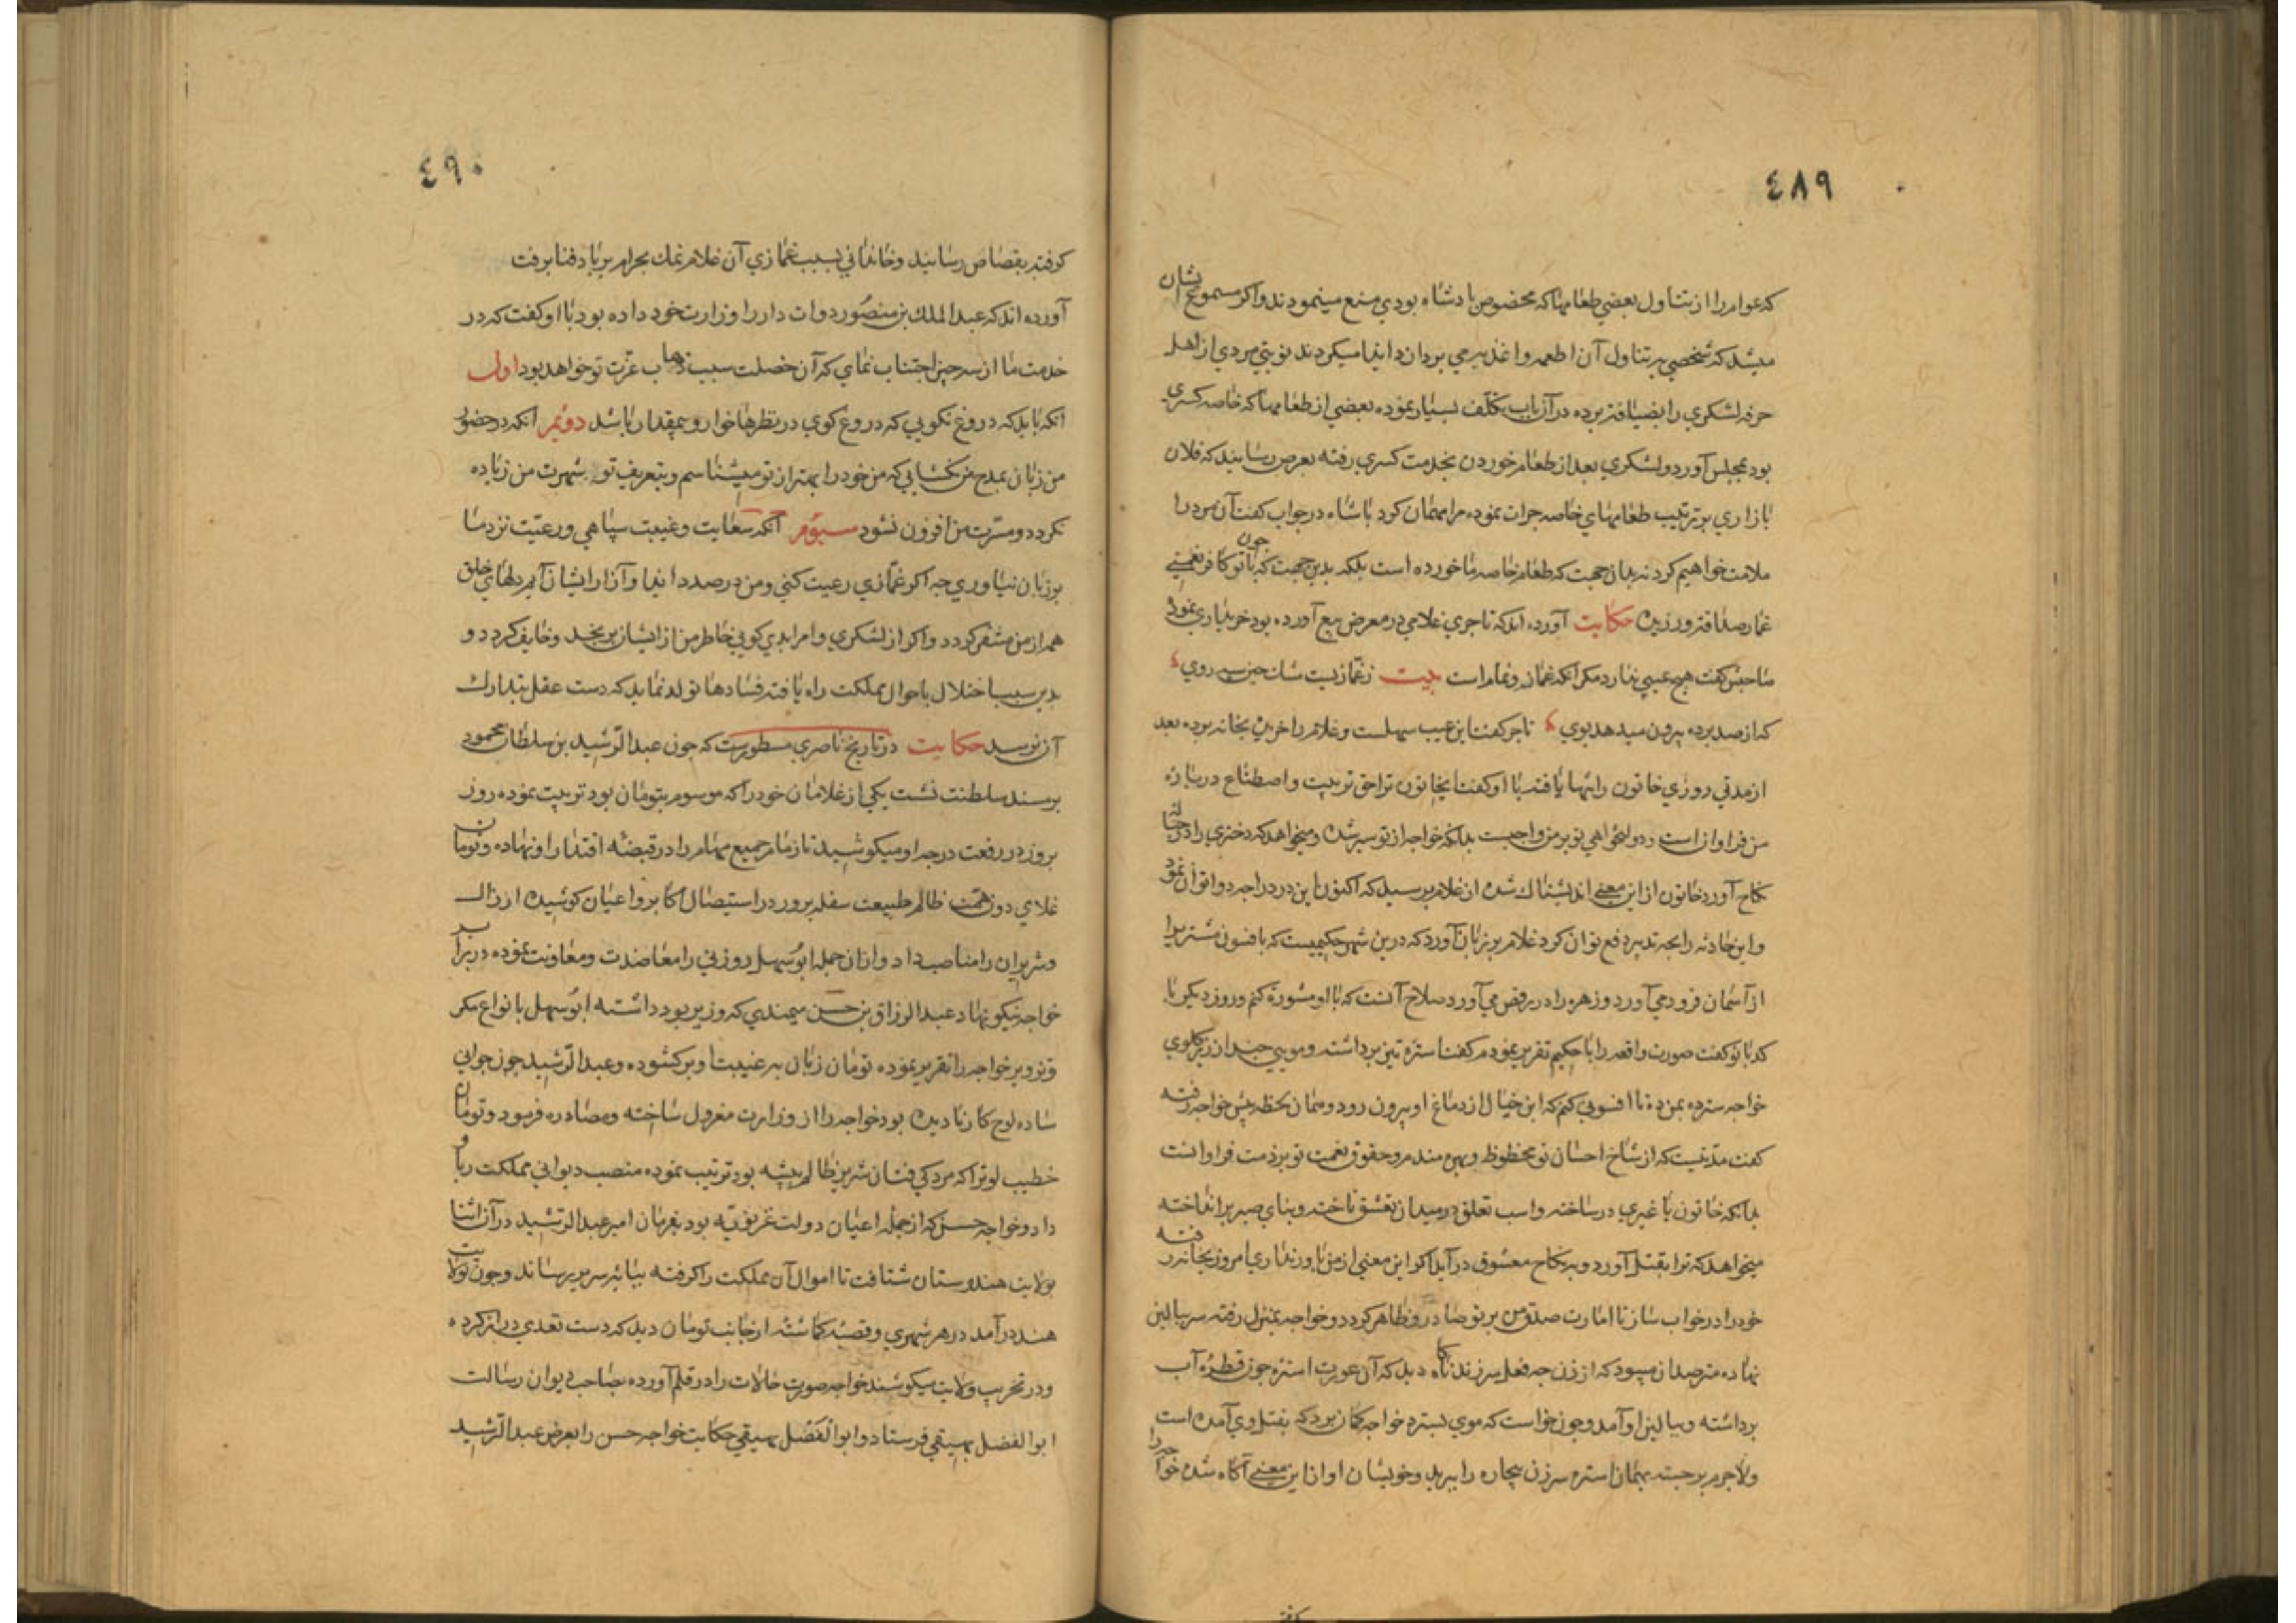 ٤٨٩
که عوام را از تناول بعضی طعامها که مخصوص پادشاه بودی منع مینمودند و اکر مسموع ایشان
میشد که شخصی بر تناول آن اطعمه و اغذیه می بردازد ایذا میکردند نوبتی مردی از اهل
حرفه لشکری را بضیافت برده در آن باب تکلف بسیار نموده بعضی از طعامها که خاصه کسری
بود بمجلس آورد و لشکری بعد از طعام خوردن بخدمت کسری رفته بعرض رسانید که فلان
بازاری بر ترتیب طعامهای خاصه جرات نموده مرا مهمان کرد پادشاه در جواب کفت آن مرد را
ملامت خواهیم کرد نه بدان جهت که طعام خاصه ما خورده است بلکه بدین جهت که با تو کافر نعمتی
غمار صداقت ورزیده حکایت آورده اند که تاجری غلامی در معرض بیع آورده بود خریداری نمود
صاحبش کفت هیچ عیبی ندارد مکر انکه غماز و نمام است بیت ز غماز نیست سان چین سیه روی
که از صد پرده بیرون میدهد بوی تاجر کفت این عیب سهلست و غلام را خریده بخانه برده بعد
از مدتی روزی خاتون را تنها یافته با او کفت ایخاتون ترا حق تربیت و اصطناع درباره
من فراوان است و دولتخواهی تو بر من واجبست بدانکه خواجه از تو سیر شده و میخواهد که دختری را در خانه
نکاح آورد خاتون از این معنی اندیشناک شده از غلام برسید که اکنون این درد را جه دوا توان نمود
و این حادثه را بجه تدبیر دفع توان کرد غلام بر زبان آورد که درین شهر حکیمیست که بافسون مشتریرا
از آسمان فرود می آورد و زهره را در رقص می آورد صلاح آنست که با او مشورة کنم و روز دیکر با
کدبانو کفت صورت واقعه را با حکیم تقریر نمودم کفت استره تیز برداشته و مویی چند از زیر کلوی
خواجه سترده بمن ده تا افسونی کنم که این خیال از دماغ او بیرون رود و همان لحظه پیش خواجه رفته
کفت مدتیست که از شاخ احسان تو محظوظ و بهره مندم و حقوق نعمت تو بر ذمت فراوانست
بدانکه خاتون با غیری در ساخته و اسب تعلق در میدان تعشق تاخته و بنای صبر بر انداخته
میخواهد که ترا بقتل آورد و به نکاح معشوق درآید اکر این معنی از من باور نداری امروز بخانه رفته
خود را در خواب ساز تا امارت صدق من بر تو صادر و ظاهر کردد و خواجه بمنزل رفته سر ببالین
نهاده مترصد آن میبود که از زن جه فعل سر زند ناکاه دید که آن عورت استره چون قطره آب
برداشته و ببالین او آمد و چون خواست که موی بسترد خواجه کمان برد که بقتل وی آمده است
ولاجرم برجسته بهمان استره سر زن بیچاره را ببرید و خویشان او از این معنی آکاه شده خواجه را
٤٩٠
کرفته بقصاص رسانید و خاندانی بسبب غمازی آن غلام نمک بحرام بر باد فنا برفت
آورده اند که عبدالملک بن منصور دوات دار را وزارت خود داده بود با او کفت که در
خدمت ما از سه چیز اجتناب نمای که آن خصلت سبب ذهاب عزت تو خواهد بود اول
انکه باید که دروغ نکویی که دروغ کوی در نظرها خوار و بیمقدار باشد دوئم انکه در حضور
من زبان بمدح من نکشایی که من خود را بهتر از تو میشناسم و بتعریف تو شهرت من زیاده
نکردد و مسرت من افزون نشود سیوم آنکه سعایت و غیبت سپاهی و رعیت نزد ما
بر زبان نیاوری جه اکر غمازی رعیت کنی و من در صدد ایذا و آزار ایشان آیم دلهای خلق
همه از من متنفر کردد و اکر از لشکری و امرا بدی کویی خاطر من از ایشان برنجد و خایف کردد و
بدین سبب اختلال باحوال مملکت راه یافته فسادها تولد نماید که دست عقل بتدارک
آن نرسد حکایت در تاریخ ناصری مسطورست که جون عبدالرشید بن سلطان محمود
بر مسند سلطنت نشست یکی از غلامان خود را که موسوم بتومان بود تربیت نموده روز
بروز در رفعت درجه او میکوشید تا زمام جمیع مهام را در قبضه اقتدار او نهاده و تومان
غلامی دون همت ظالم طبیعت سفله پرور در استیصال اکابر و اعیان کوشیده ارذال
و شریران را مناصب داد و ازان جمله ابوسهل روزنی را معاضدت و معاونت نموده در برابر
خواجه نیکو نهاد عبدالرزاق بن حسن میمندی که وزیر بود داشته ابوسهل بانواع مکر
و تزویر خواجه را تقریر نموده تومان زبان به غیبت او برکشوده و عبدالرشید چون جوانی
ساده لوح کار نادیده بود خواجه را از وزارت معزول ساخته و مصادره فرمود و تومان
خطیب لوترا که مردکی فتان شریر ظالم پیشه بود ترتیب نموده منصب دیوانی مملکت را باو
داد و خواجه حسن که از جمله اعیان دولت غزنویه بود بفرمان امیر عبدالرشید در آن اثنا
بولایت هندوستان شتافت تا اموال آن مملکت را کرفته بپایه سریر رساند و چون بولایت
هند درآمد در هر شهری و قصبه کماشته از جانب تومان دید که دست تعدی دراز کرده
و در تخریب ولایت میکوشند خواجه صورت حالات را در قلم آورده بصاحب دیوان رسالت
ابوالفضل بیهقی فرستاد و ابوالفضل بیهقی حکایت خواجه حسن را بعرض عبدالرشید